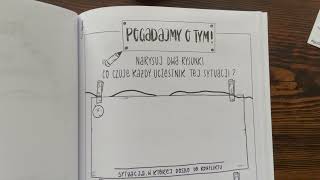 POGADAJMY O TYM!
NARYSUJ DWA RYSUNKI
CO CZUJE KAŻDY UCZESTNIK TEJ SYTUACJI?
SYTUACJA, W KTÓREJ DOSZŁO DO KONFLIKTU